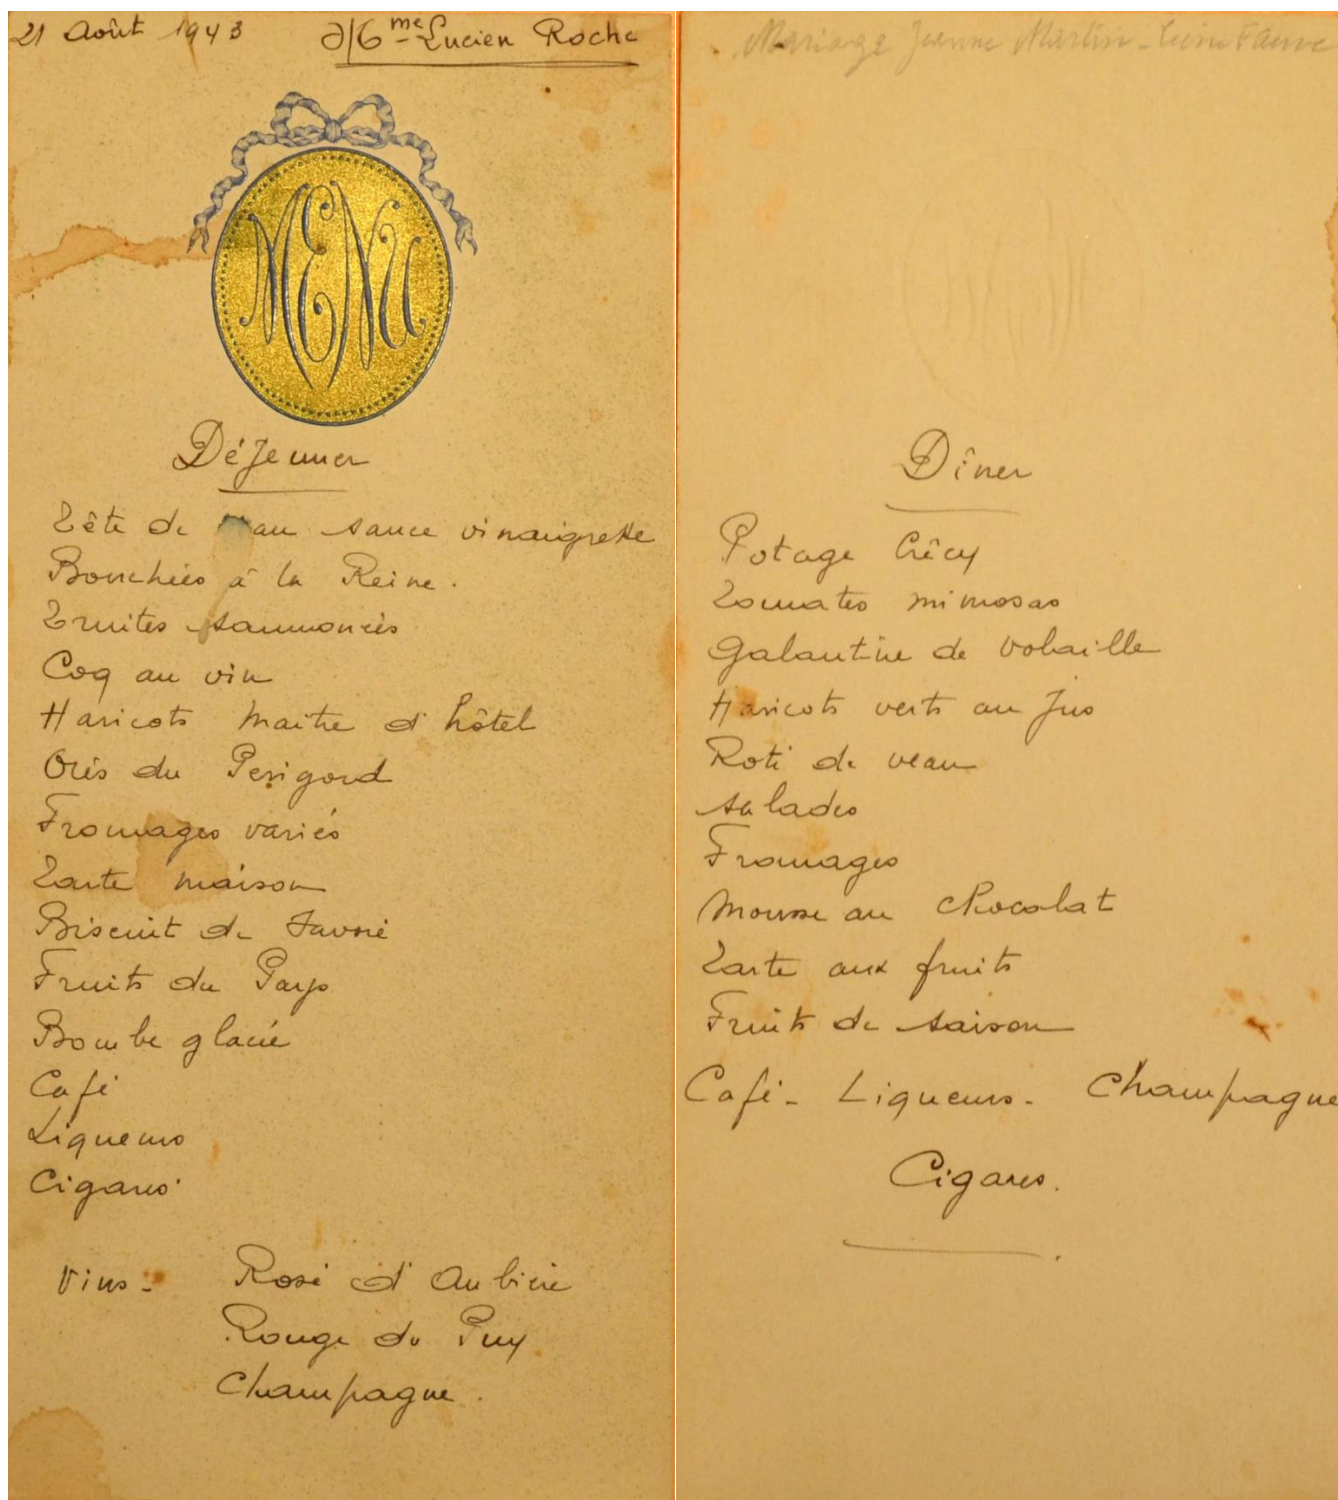 21 Août 1943 Mme Lucien Roche
MENU
Déjeuner
Tête de eau sauce vinaigrette
Bouchées à la Reine.
Truites saumonées
Coq au vin
Haricots Maitre d'hôtel
Oies du Perigord
Fromages variés
Tarte maison
Biscuit de Savoie
Fruits du Pays
Bombe glacée
Café
Liqueurs
Cigares
Vins - Rosé d'Aubière
Rouge du Puy
Champagne.
Mariage Jeanne Martin - Faure
Dîner
Potage Crêcy
Tomates mimosas
Galantine de volaille
Haricots verts au jus
Roti de veau
Salades
Fromages
Mousse au chocolat
Tarte aux fruits
Fruits de saison
Café - Liqueurs - Champagne
Cigares.